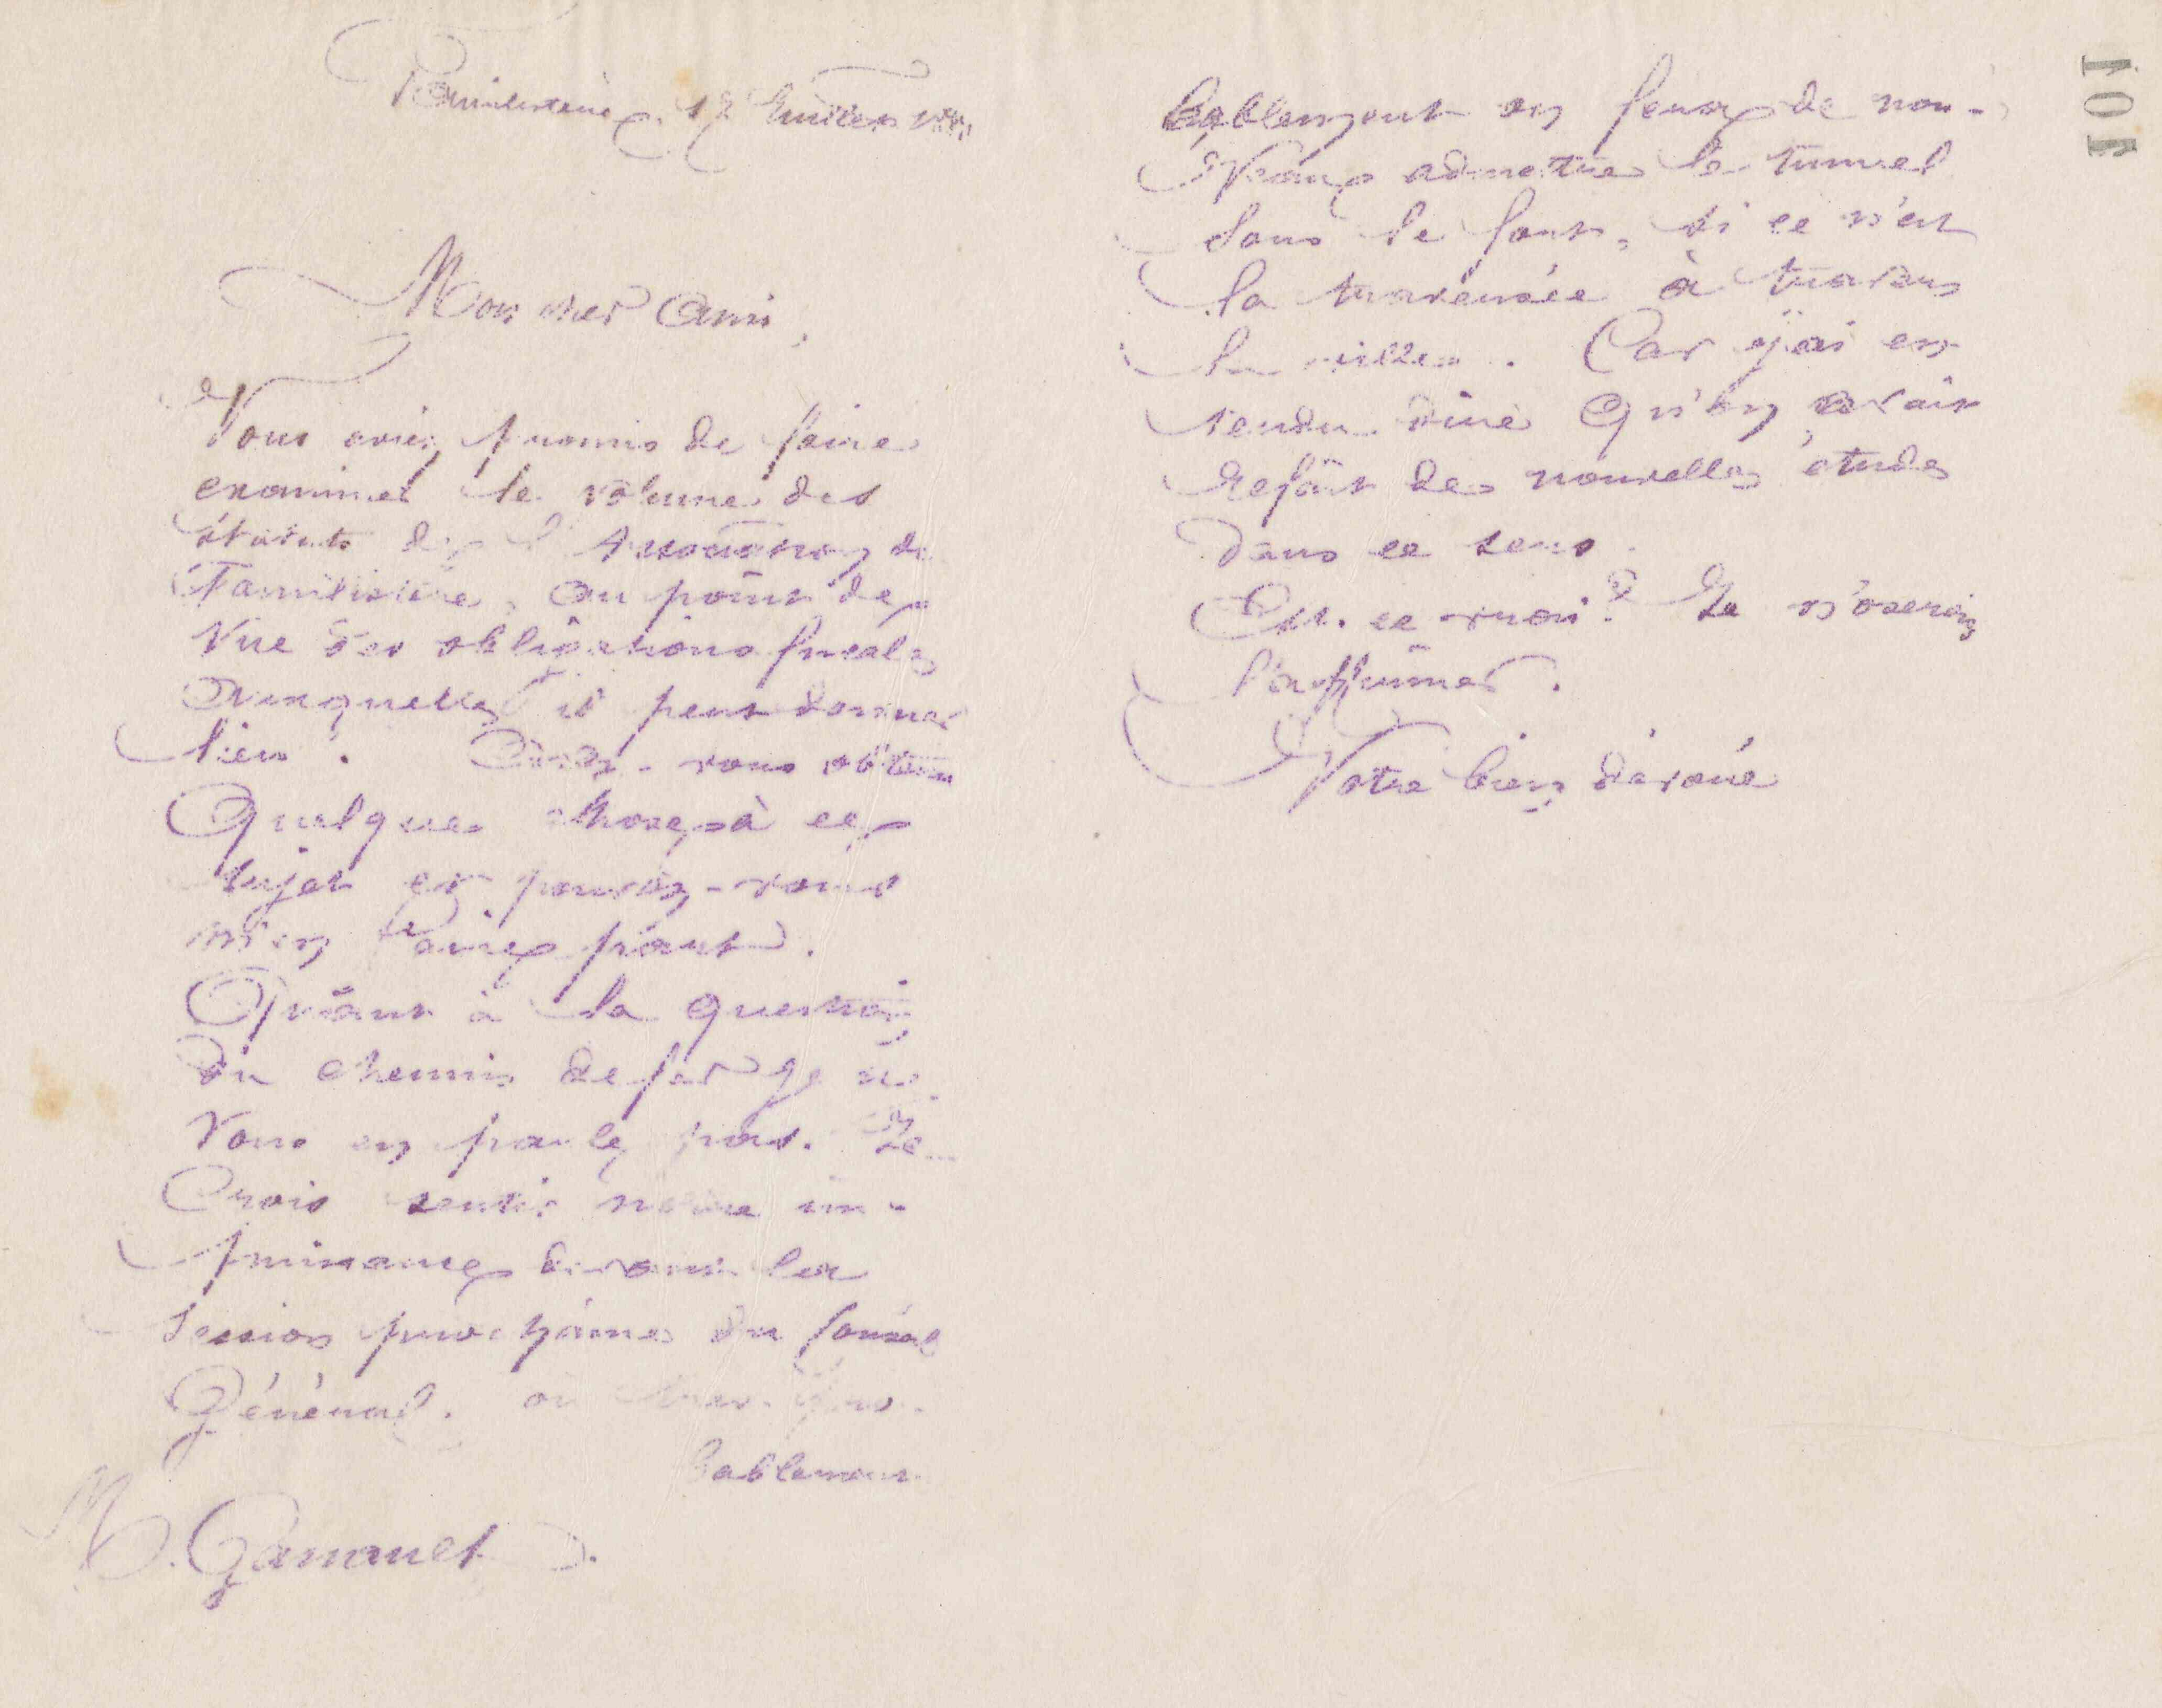 Familistère, 12 Juillet
Mon cher Ami,
Vous aviez promis de faire
examiner le volume des
statuts de l'Association du
Familistère, au point de
vue des obligations fiscales
auxquelles il peut donner
lieu. Avez-vous obtenu
quelque chose à ce
sujet et pouvez-vous
m'en faire part.
Quant à la question
du chemin de fer je ne
vous en parle pas. Je
crois sentir notre im-
puissance devant la
session prochaine du Conseil
Général. on pro-
bablement
M. Ganault.
bablement on fera de nou-
veau admettre le tunnel
sous le fort, si ce n'est
la traversée à travers
la ville. Car j'ai en-
tendu dire qu'on avait
refait des nouvelles études
dans ce sens.
Est-ce vrai? Je n'oserais
l'affirmer.
Votre bien dévoué
101